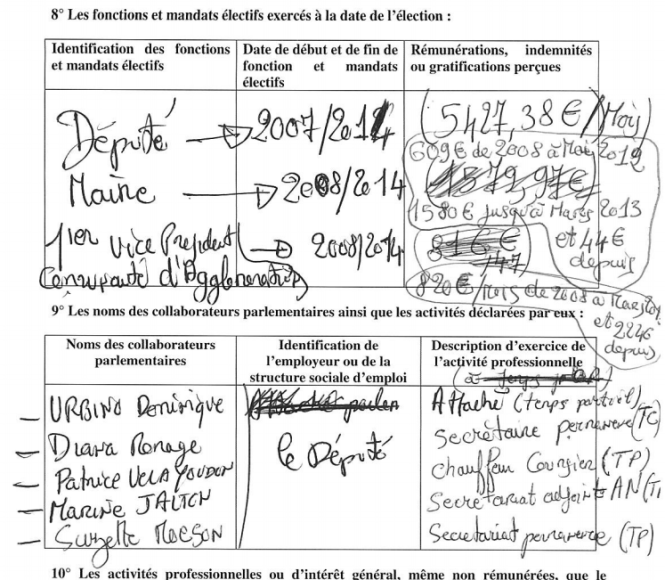 8° Les fonctions et mandats électifs exercés à la date de l'élection :
Identification des fonctions et mandats électifs
Date de début et de fin de fonction et mandats électifs
Rémunérations, indemnités ou gratifications perçues
Député → 2007/2014 (5427,38 € / Mois)
609 € de 2008 à Mai 2012
Maire → 2008/2014
1580 € jusqu'à Mars 2013
et 44 € depuis
1ier Vice Président → 2008/2014
Communauté d'Agglomération
820 € / Mois de 2008 à
et 2246 depuis
9° Les noms des collaborateurs parlementaires ainsi que les activités déclarées par eux :
Noms des collaborateurs parlementaires
Identification de l'employeur ou de la structure sociale d'emploi
Description d'exercice de l'activité professionnelle
– URBINO Dominique
– Diana Ronage
– Patrice
– Marine JALTON
– Suzette
le Député
Attaché (temps partiel)
Secrétaire permanence (TC)
Chauffeur Coursier (TP)
Secrétariat adjointe AN
Secrétariat permanence (TP)
10° Les activités professionnelles ou d'intérêt général, même non rémunérées, que le